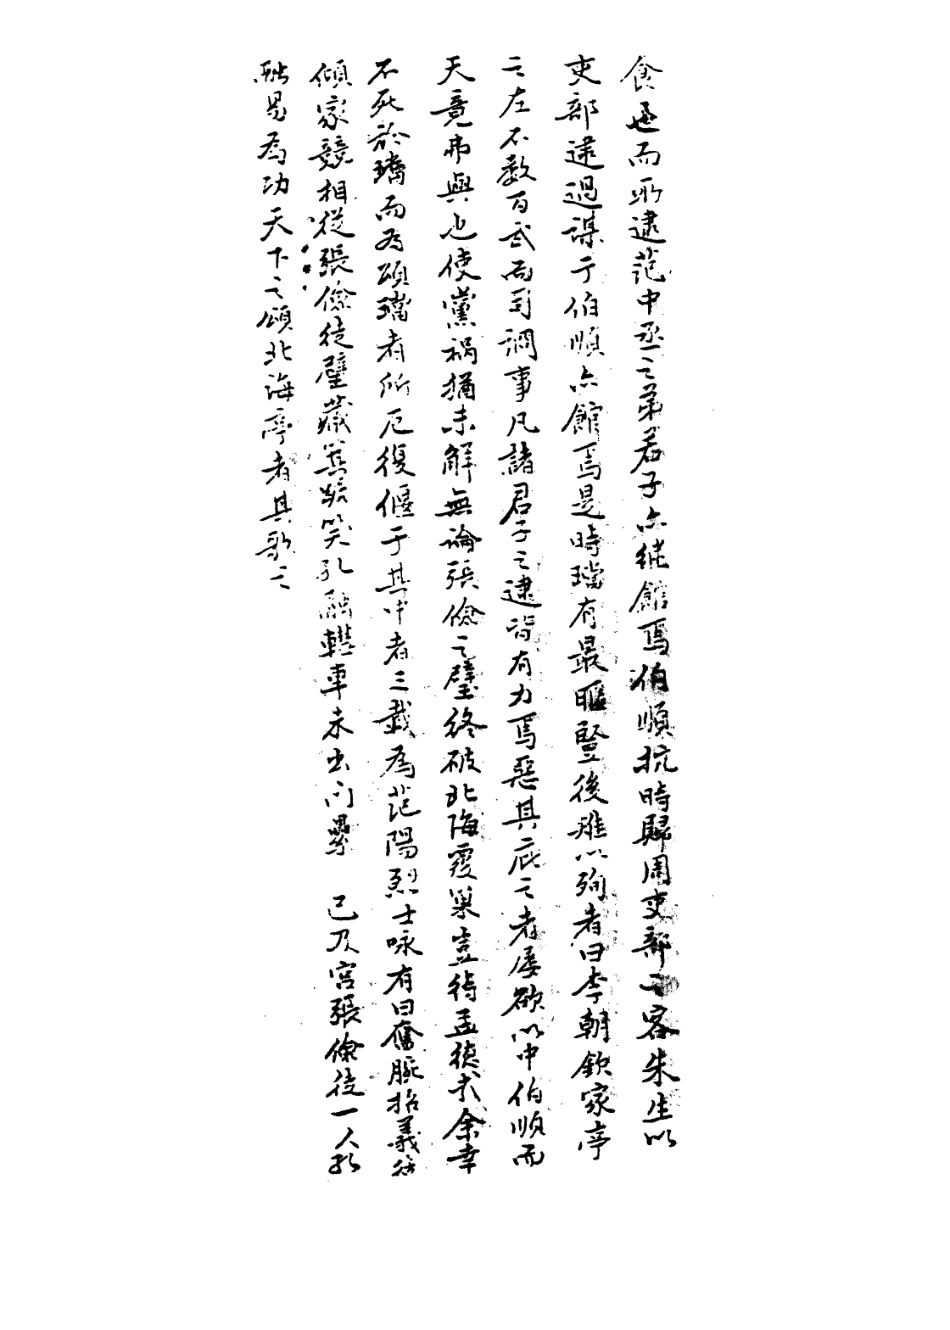 食也而所逮范中丞之弟若子亦継館焉伯順抗時歸周吏部之客朱生以
吏部逮過謀于伯順亦館焉是時璫有最暱豎後雖以殉者曰李朝欽家亭
之左不數百武而司詗事凡諸君子之逮皆有力焉惡其庇之者屡欲以中伯順而
天竟弗與也使黨禍猶未解無論張儉之壁終破北海覆巢豈待孟德哉余幸
不死於璫而為頌璫者所厄復偃于其中者三載為范陽烈士咏有曰奮腕招義徒
傾家競相從張儉徒壁藏笑孔融轞車未出門舉已及宮張儉徒一人孔
融易為功天下之頌北海亭者其歌之